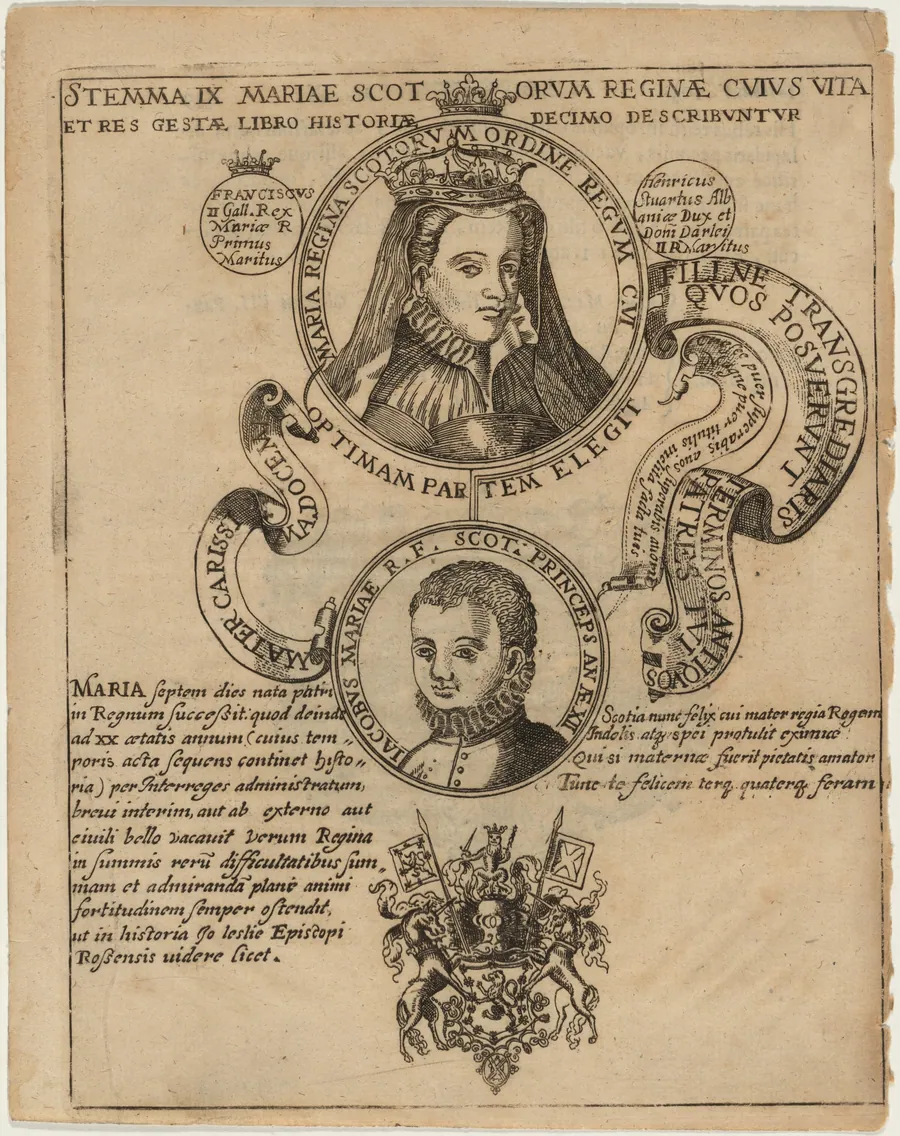 STEMMA IX MARIAE SCOTORVM REGINÆ CVIVS VITA
ET RES GESTÆ LIBRO HISTORIÆ DECIMO DESCRIBVNTVR
FRANCISCVS
II Gall. Rex
Mariæ R
Primus
Maritus
MARIA REGINA SCOTORVM ORDINE REGVM CVI
OPTIMAM PARTEM ELEGIT
Henricus
Stuartus Alb
aniæ Dux et
Dom̄ Darlei
II R Maritus
FILI NE TRANSGREDIARIS
TERMINOS ANTIQVOS
QVOS POSVERVNT
PATRES TVI
puer superabis avos superabis
puer titulis inclita facta tuis
MATER CARISSI
DOCEN
IACOBVS MARIAE R. F. SCOT: PRINCEPS AN Æ XII
MARIA septem dies nata patri
in Regnum succeßit: quod deinde
ad xx ætatis annum (cuius tem„
poris acta sequens continet histo„
ria) per Interreges administratum,
brevi interim, aut ab externo aut
ciuili bello vacauit verum Regina
in summis rerū difficultatibus sum„
mam et admirandā planè animi
fortitudinem semper ostendit,
ut in historia Jo leslie Episcopi
Roßensis uidere licet.
Scotia nunc felix cui mater regia Regem
Indolis atq; spei protulit eximiæ
Qui si maternæ fuerit pietatis amator
Tunc te felicem terq. quaterq. feram